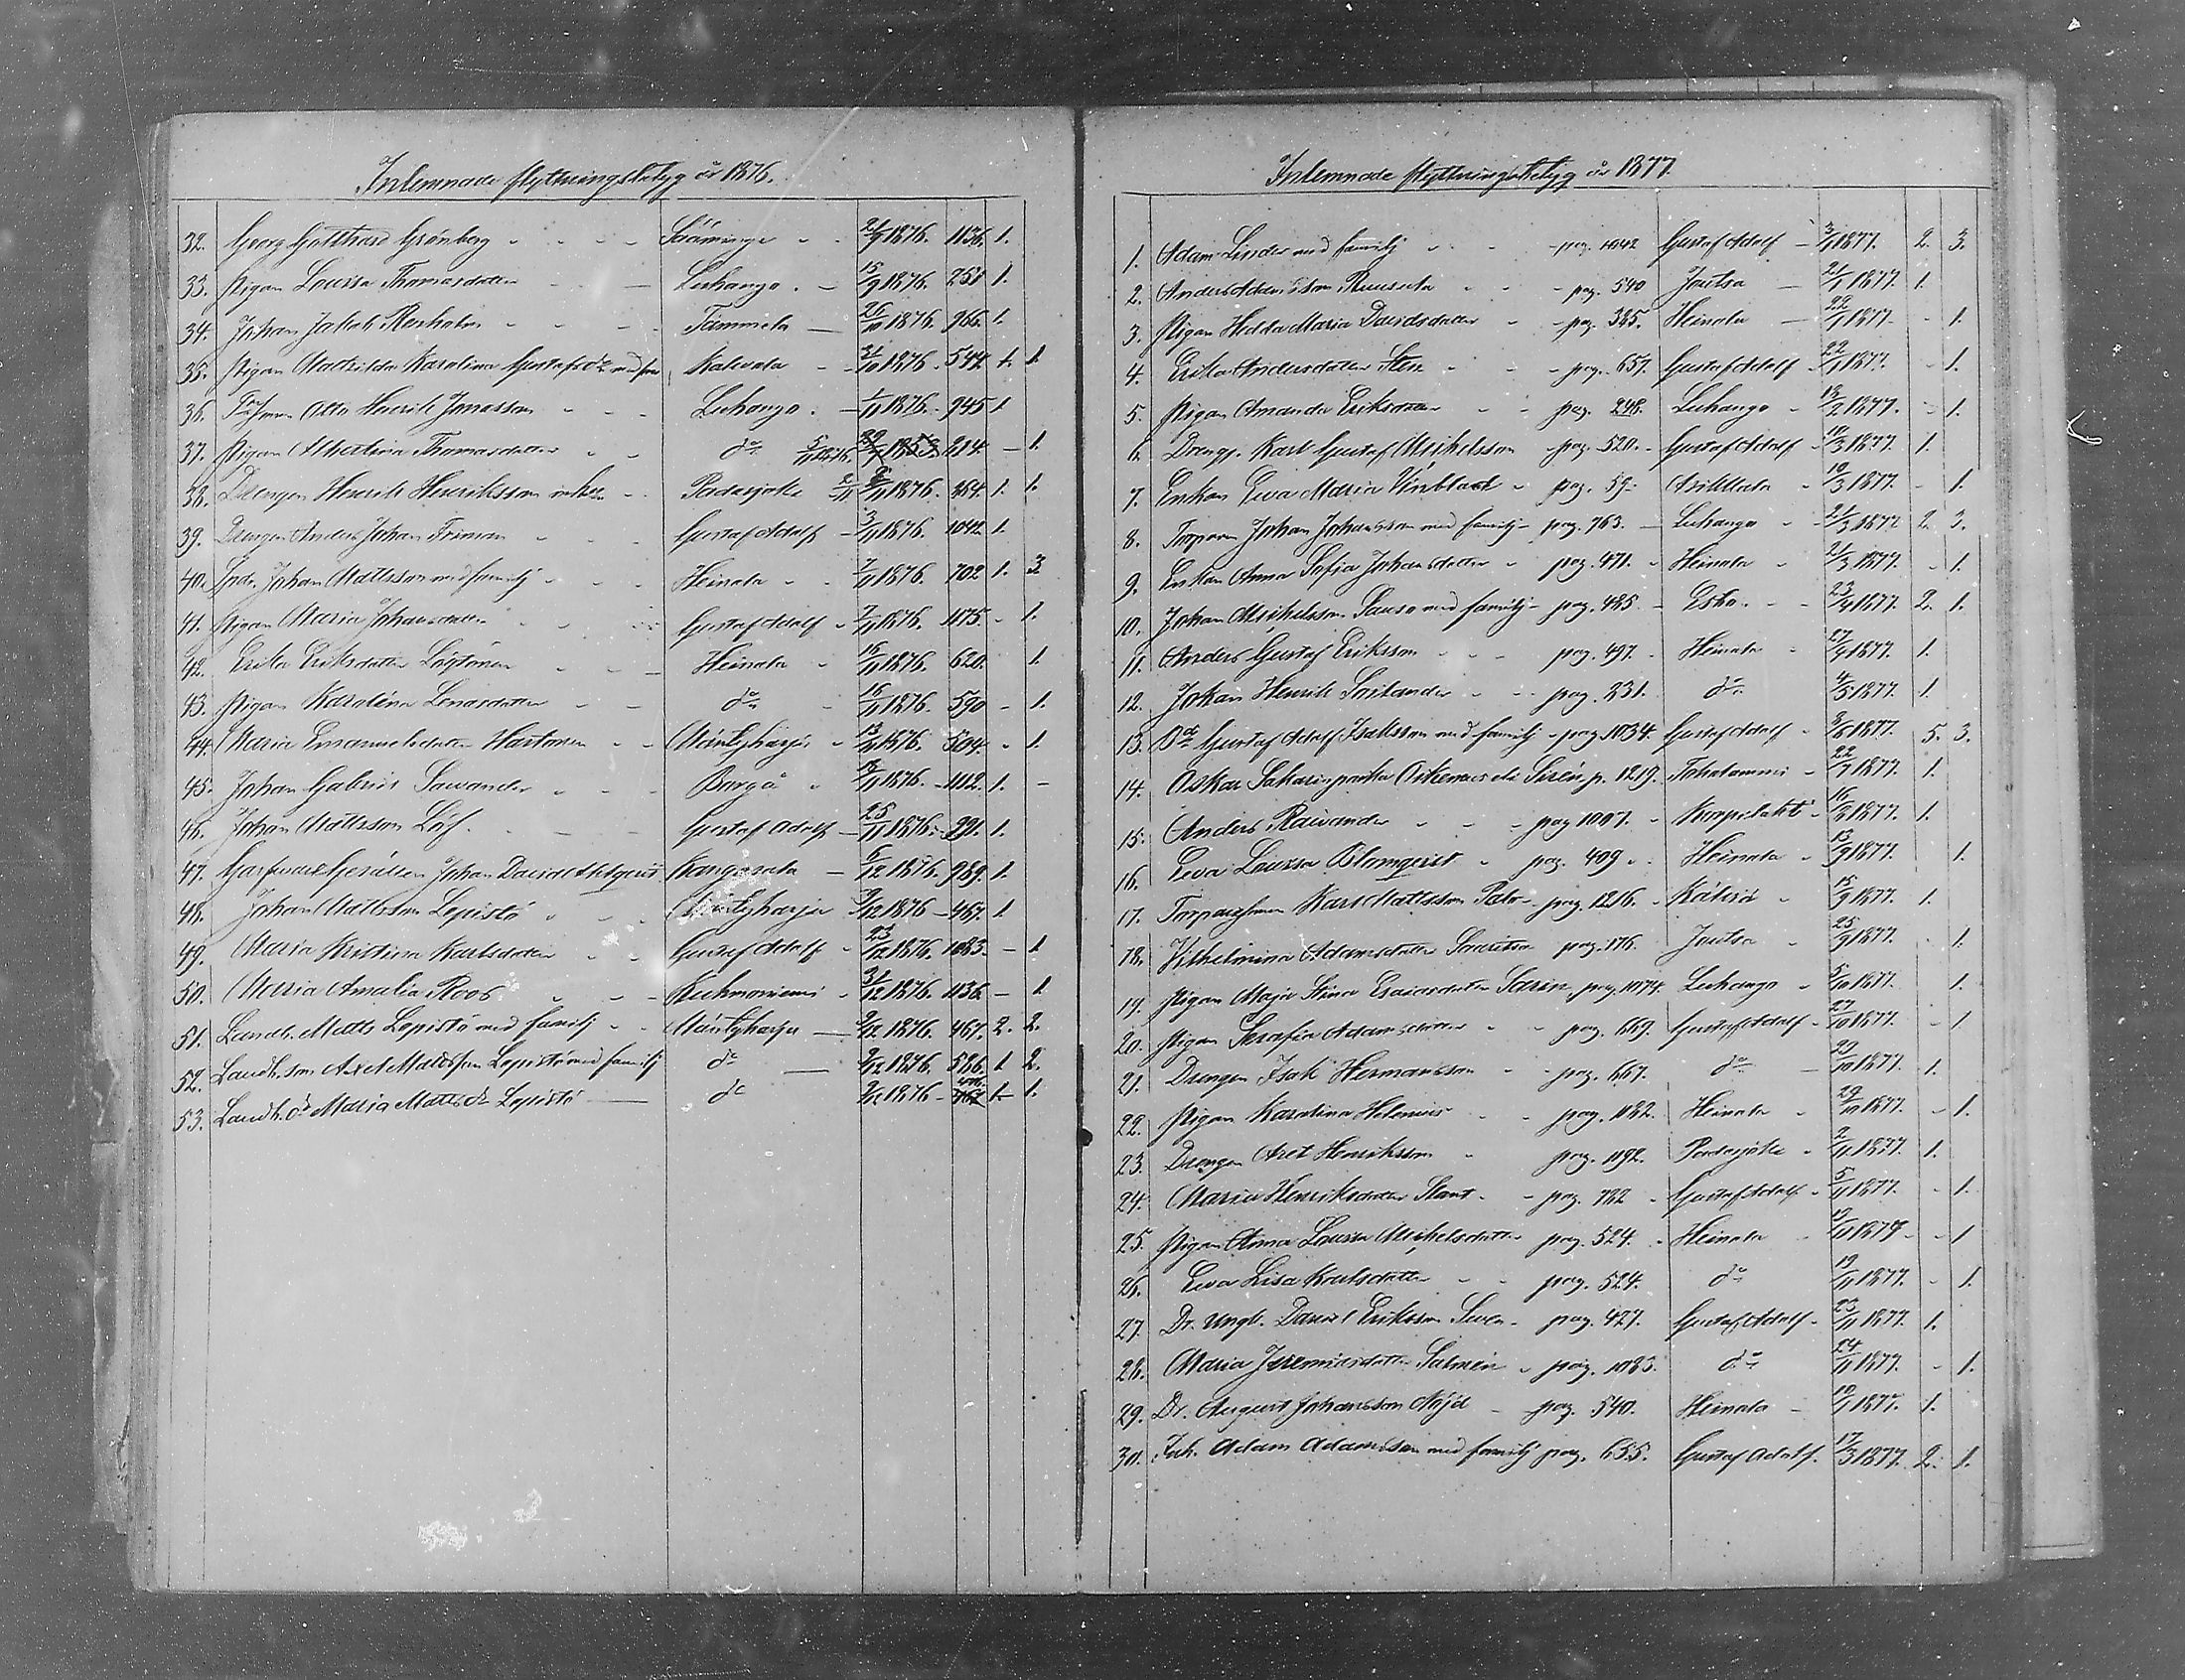 Inlemnade flyttningsbetyg år 1876.
32. Georg Gotthard Grönberg Sääminge 2/9 1876. 1136. 1.
33. Pigan Lovisa Thomasdotter Luhango. 15/9 1876. 251 1.
34. Johan Jakob Tammela 26/10 1876. 966. 1.
35. Pigan Mathilda Karolina Gustafsdr Kalvola 31/10 1876. 544. 1. 1.
36. Otto Henrik Jonasson Luhango. 1/11 1876. 945 1
37. Pigan Albertina Thomasdotter do 5/11 1876. 214. — 1.
38. Drengen Henrik Henriksson Padasjoki 2/11 1876. 464. 1. 1.
39. Drengen Anders Johan Friman Gustaf Adolf 3/11 1876. 1042. 1.
40. Johan Mattsson med familj Heinola 7/11 1876. 702 1. 3.
41. Pigan Maria Johansdotter Gustaf Adolf 7/11 1876. 1175. - 1.
42. Erika Eriksdotter Löytönen Heinola 16/11 1876. 620. 1.
43. Pigan Karolina Lenasdotter do 16/11 1876. 590 - 1.
44. Maria Emanuelsdotter Hartonen Mäntyharju 13/11 1876. 504. - 1.
45. Johan Gabriel Sawander Borgå 18/11 1876. 1112. 1. -
46. Johan Mattsson Löf. Gustaf Adolf 25/11 1876. 991. 1.
47. Johan David Kangasala 6/12 1876. 989. 1.
48. Johan Mattsson Lepistö Mäntyharju 9/12 1876 467. 1
49. Maria Kristina Karlsdotter Gustaf Adolf 23/12 1876. 1083. — 1
50. Maria Amalia Roos Kuhmoniemi 31/12 1876. 1136. — 1.
51. Landb. Matts Lepistö med familj Mäntyharju 9/12 1876. 467. 2. 2.
52. Landb. son Axel Mattsson Lepistö med familj do 9/12 1876. 586. 1 2.
53. Landb. dr Maria Mattsdr Lepistö do 9/12 1876 467 1. 1.
Inlemnade flyttningsbetyg år 1877.
1. Adam Linder med familj pag. 1042 Gustaf Adolf 3/1 1877. 2. 3.
2. Anders Adamsson Ruuska pag. 540 Joutsa 21/1 1877. 1.
3. Pigan Hedda Maria Davidsdotter pag. 325. Heinola 22/1 1877. - 1.
4. Erika Andersdotter Sten pag. 657. Gustaf Adolf 22/1 1877. - 1.
5. Pigan Amanda Eriksdotter pag. 248. Luhango 13/2 1877. - 1.
6. Drengen Karl Gustaf Mickelsson pag. 520. Gustaf Adolf 10/3 1877. 1.
7. Enkan Eva Maria pag. 59. Asikkala 19/3 1877. - 1.
8. Torparen Johan Johansson med familj pag. 763. Luhango 21/3 1877 2. 3.
9. Enkan Anna Sofia Johansdotter pag. 471. Heinola 21/3 1877. - 1.
10. Johan Mickelsson med familj pag. 485. Esbo. 23/4 1877. 2. 1.
11. Anders Gustaf Eriksson pag. 497. Heinola 27/4 1877. 1.
12. Johan Henrik pag. 231. do 4/5 1877. 1.
13. Gustaf Adolf Isaksson med familj pag. 1034. Gustaf Adolf 3/6 1877. 5. 3.
14. Oskar Sakarinpoika Siren p. 1219. Toholammi 22/7 1877. 1.
15. Anders Raivander pag 1007. Korpilaks 16/8 1877. 1.
16. Eva Lovisa Blomqvist pag. 409. Heinola 13/9 1877. 1.
17. Karl Mattsson pag. 1216. 15/9 1877. 1.
18. Vilhelmina Adamsdotter pag. 176. Joutsa 25/9 1877. - 1.
19. Pigan Maja Stina Esaiasdotter pag. 1074. Luhango 5/10 1877. 1.
20. Pigan Serafia Adamsdotter pag. 669. Gustaf Adolf 27/10 1877. - 1.
21. Drengen Isak Hermansson pag. 667. do 29/10 1877. 1.
22. Pigan Karolina Helenius pag. 1182. Heinola 29/10 1877. - 1.
23. Drengen Axel Henriksson pag. 1192. Padasjoki 2/11 1877. 1.
24. Maria Henriksdotter pag. 722 Gustaf Adolf 5/11 1877. - 1.
25. Pigan Anna Lovisa Mickelsdotter pag. 524. Heinola 19/11 1877. - 1
26. Eva Lisa Karlsdotter pag. 524. do 19/11 1877. - 1.
27. Dr. Ungk. David Eriksson pag. 427. Gustaf Adolf 23/11 1877 1.
28. Maria Jeremiasdotter Salmén pag. 1083. do 24/11 1877. - 1.
29. Dr. August Johansson Nöjd pag. 540. Heinola 18/1 1877. 1.
30. Inh. Adam Adamsson med familj pag. 655. Gustaf Adolf. 17/3 1877. 2. 1.